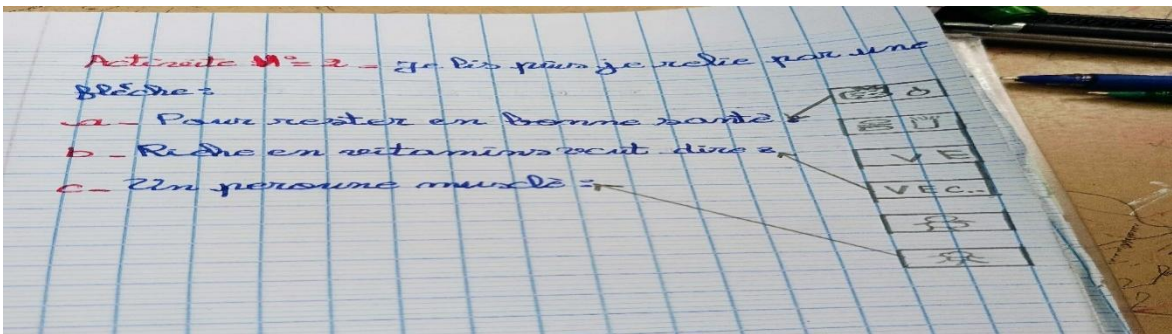 Activite N° = 2 - je lis puis je relie par une
flèche :
a - Pour rester en bonne santé :
b - Riche en vitamins veut dire :
V E
c - Un persoune musclè :
V E C...